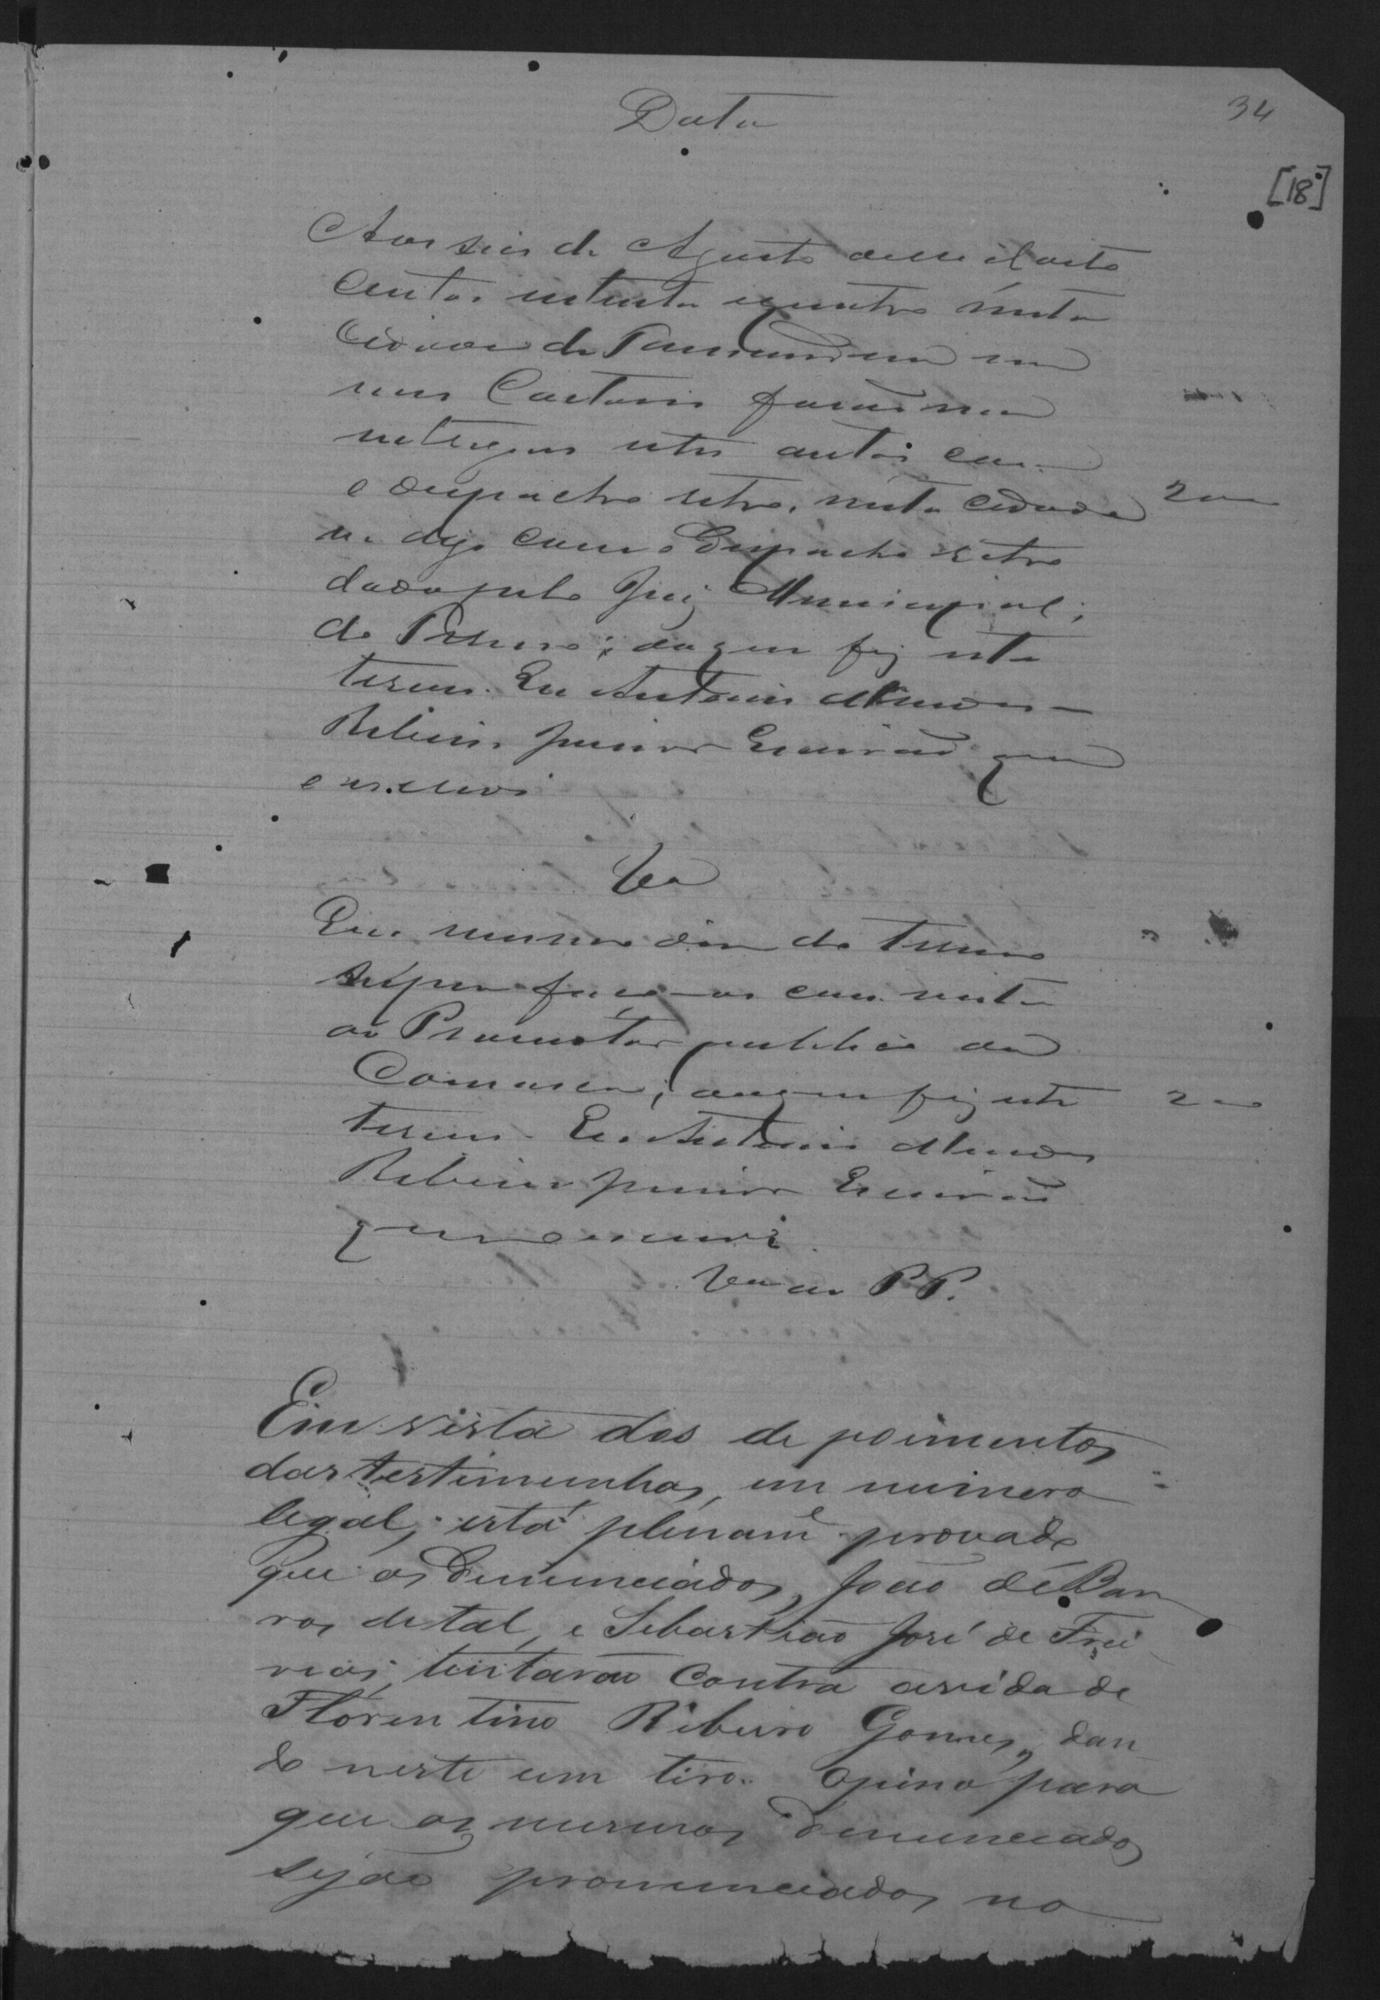 34
Data
[18]
Aos seis de Agosto de mil oito
centos setenta e quatro nesta
Cidade de em
meu Cartorio forão me
entregues estes autos com
o despacho retro, nesta cidade
digo com o Despacho retro
dado pelo Juiz Municipal
do Termo; do que fiz este
termo. Eu Antonio Mendes
Ribeiro Junior Escrivão que
o escrevi
Va
Em mesmo dia do termo
supra faço-os com vista
ao Promotor publico da
Comarca; do que fiz este
termo. Eu Antonio Mendes
Ribeiro Junior Escrivão
que o escrevi.
Va ao P P.
Em vista dos depoimentos
das testimunhas, em numero
legal, está plenamᵉ provado
que os denunciados, João de Bar
ros de tal, e Sebastião José de Frei
tentarão contra a vida de
Florentino Ribeiro Gomes, dan
do neste um tiro. Opino para
que os mesmos denunciados
sejão pronunciados no